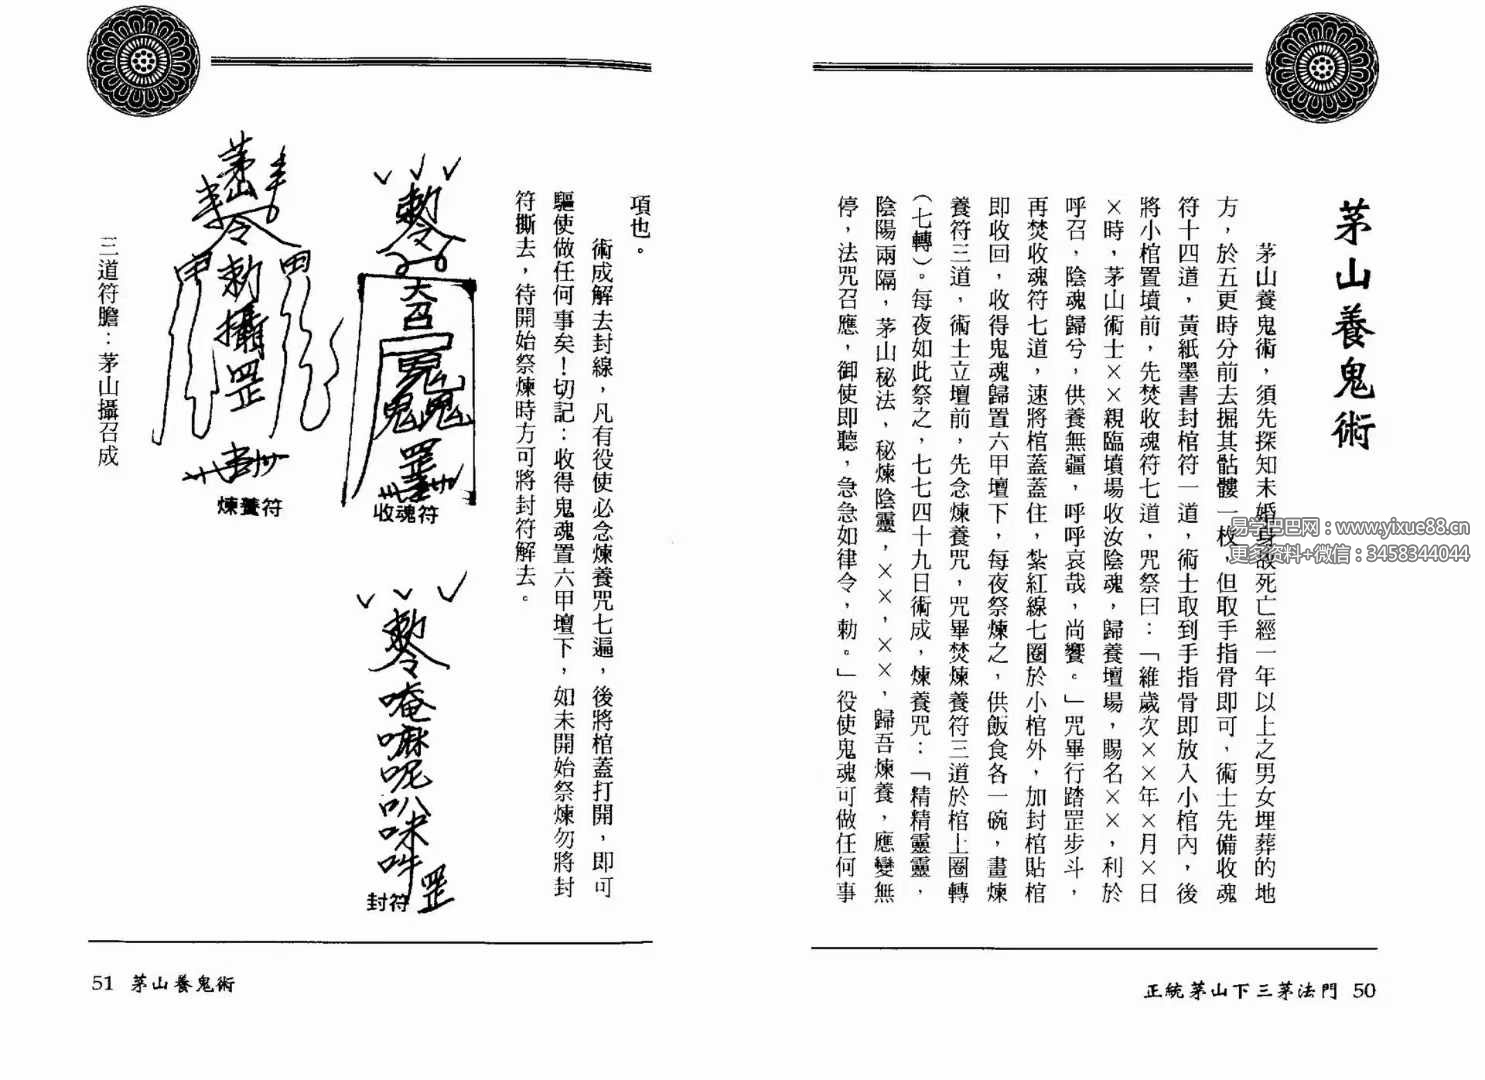 茅山養鬼術
茅山養鬼術，須先探知未婚身故死亡經一年以上之男女埋葬的地
方，於五更時分前去掘其骷髏一枚，但取手指骨即可，術士先備收魂
符十四道，黃紙墨書封棺符一道，術士取到手指骨即放入小棺內，後
將小棺置墳前，先焚收魂符七道，咒祭曰：「維歲次××年×月×日
×時，茅山術士××親臨墳場收汝陰魂，歸養壇場，賜名××，利於
呼召，陰魂歸兮，供養無疆，呼呼哀哉，尚饗。」咒畢行踏罡步斗，
再焚收魂符七道，速將棺蓋蓋住，紮紅線七圈於小棺外，加封棺貼棺
即收回，收得鬼魂歸置六甲壇下，每夜祭煉之，供飯食各一碗，畫煉
養符三道，術士立壇前，先念煉養咒，咒畢焚煉養符三道於棺上圈轉
（七轉）。每夜如此祭之，七七四十九日術成，煉養咒：「精精靈靈，
陰陽兩隔，茅山秘法，秘煉陰靈，××，××，歸吾煉養，應變無
停，法咒召應，御使即聽，急急如律令，勅。」役使鬼魂可做任何事
正統茅山下三茅法門 50
項也。
術成解去封線，凡有役使必念煉養咒七遍，後將棺蓋打開，即可
驅使做任何事矣！切記：收得鬼魂置六甲壇下，如未開始祭煉勿將封
符撕去，待開始祭煉時方可將封符解去。
勅令
大召
鬼
鬼鬼
罡
收魂符
勅令
唵嘛呢叭咪吽
罡
封符
茅山
令
勅攝罡
甲
田
煉養符
三道符膽：茅山攝召成
51 茅山養鬼術
易学巴巴网：www.yixue88.cn
更多资料+微信：3458344044